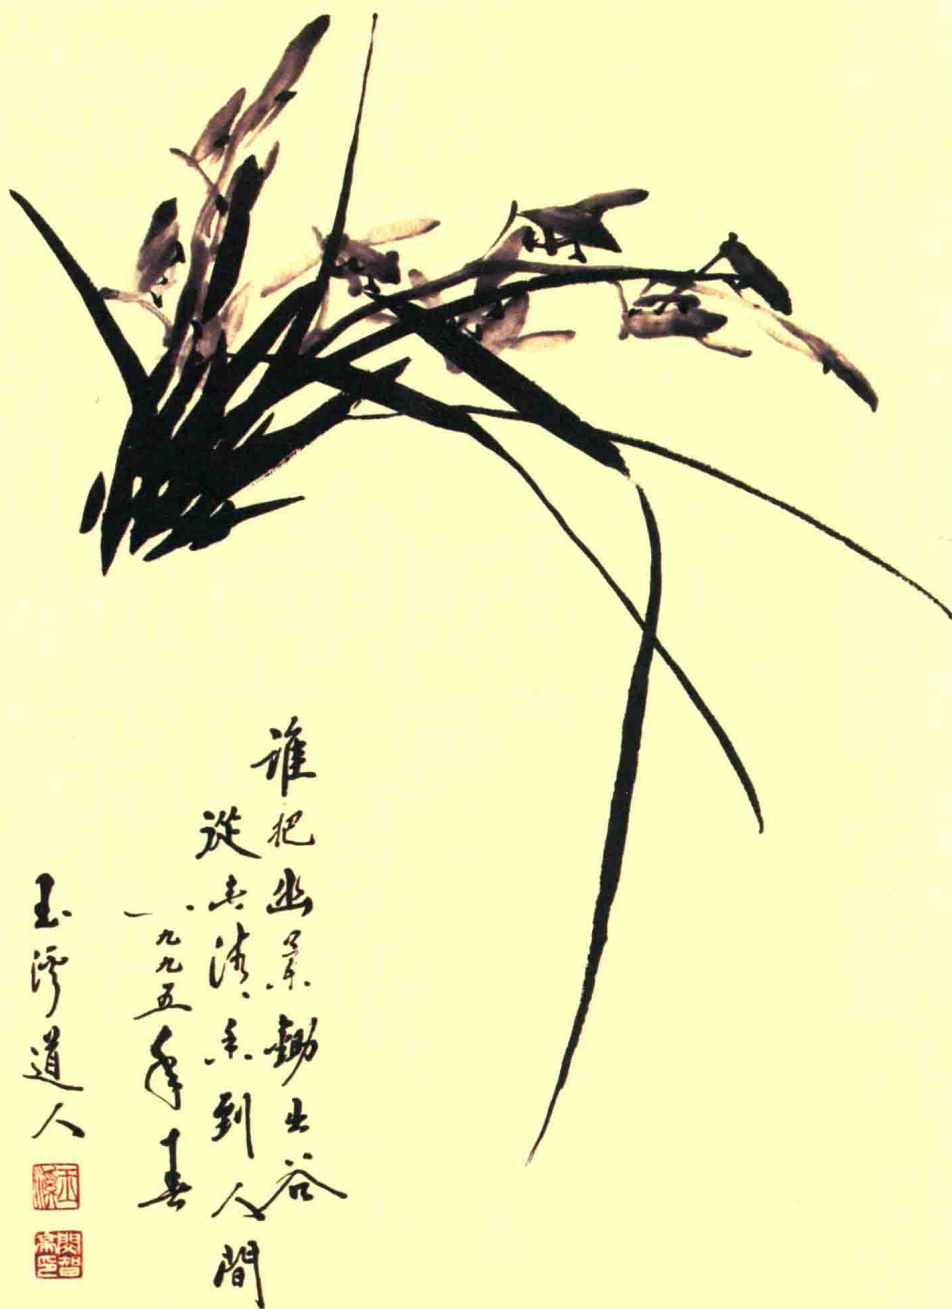 誰把幽叢鋤出谷
從此清香到人間
一九九五年春
玉溪道人
玉溪